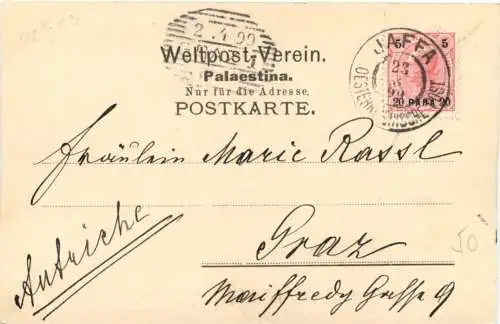 2.4.99
JAFFA
5 5
23
3
99
20 PARA 20
OESTERREICHISCHE POST
Weltpost-Verein.
Palaestina.
Nur für die Adresse.
POSTKARTE.
Fräulein Marie Rassl
Autriche
Graz
Maiffredy Gasse 9
50